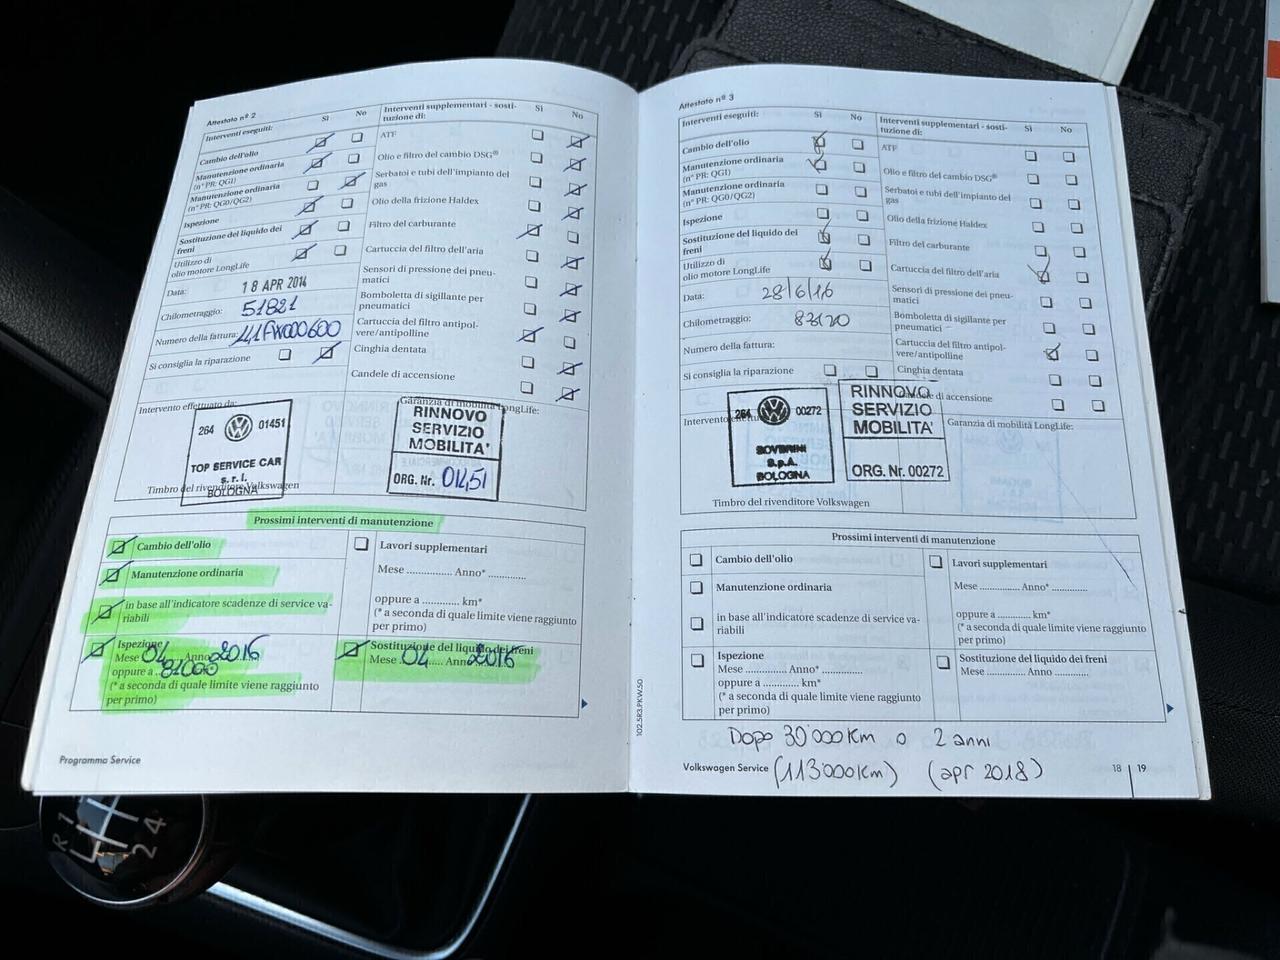 Attestato nº 2
Interventi eseguiti: Sì No
Cambio dell'olio
Manutenzione ordinaria
(nº PR: QG1)
Manutenzione ordinaria
(nº PR: QG0/QG2)
Ispezione
Sostituzione del liquido dei
freni
Utilizzo di
olio motore LongLife
Data: 18 APR 2014
Chilometraggio: 51821
Numero della fattura: 41FW000600
Si consiglia la riparazione
Interventi supplementari - sosti-
tuzione di: Sì No
ATF
Olio e filtro del cambio DSG®
Serbatoi e tubi dell'impianto del
gas
Olio della frizione Haldex
Filtro del carburante
Cartuccia del filtro dell'aria
Sensori di pressione dei pneu-
matici
Bomboletta di sigillante per
pneumatici
Cartuccia del filtro antipol-
vere/antipolline
Cinghia dentata
Candele di accensione
Intervento effettuato da:
264 01451
TOP SERVICE CAR
s.r.l.
BOLOGNA
Timbro del rivenditore Volkswagen
Garanzia di mobilità LongLife:
RINNOVO
SERVIZIO
MOBILITA'
ORG. Nr. 01451
Prossimi interventi di manutenzione
Cambio dell'olio
Manutenzione ordinaria
in base all'indicatore scadenze di service va-
riabili
Ispezione
Mese 04 Anno 2016
oppure a 81000
(* a seconda di quale limite viene raggiunto
per primo)
Lavori supplementari
Mese ............... Anno* .............
oppure a ............ km*
(* a seconda di quale limite viene raggiunto
per primo)
Sostituzione del liquido dei freni
Mese 04 Anno 2016
Programma Service
102.5R3.PKW.50
Attestato nº 3
Interventi eseguiti: Sì No
Cambio dell'olio
Manutenzione ordinaria
(nº PR: QG1)
Manutenzione ordinaria
(nº PR: QG0/QG2)
Ispezione
Sostituzione del liquido dei
freni
Utilizzo di
olio motore LongLife
Data: 28/6/16
Chilometraggio:
Numero della fattura:
Si consiglia la riparazione
Interventi supplementari - sosti-
tuzione di: Sì No
ATF
Olio e filtro del cambio DSG®
Serbatoi e tubi dell'impianto del
gas
Olio della frizione Haldex
Filtro del carburante
Cartuccia del filtro dell'aria
Sensori di pressione dei pneu-
matici
Bomboletta di sigillante per
pneumatici
Cartuccia del filtro antipol-
vere/antipolline
Cinghia dentata
Candele di accensione
264 00272
S.p.A.
BOLOGNA
Timbro del rivenditore Volkswagen
RINNOVO
SERVIZIO
MOBILITA'
ORG. Nr. 00272
Garanzia di mobilità LongLife:
Prossimi interventi di manutenzione
Cambio dell'olio
Manutenzione ordinaria
in base all'indicatore scadenze di service va-
riabili
Ispezione
Mese ............ Anno* ............
oppure a ............ km*
(* a seconda di quale limite viene raggiunto
per primo)
Lavori supplementari
Mese ............... Anno* .............
oppure a ............ km*
(* a seconda di quale limite viene raggiunto
per primo)
Sostituzione del liquido dei freni
Mese ............ Anno ............
Dopo 30'000 Km o 2 anni
(113'000 Km) (apr 2018)
Volkswagen Service
18 | 19
R 1 2 4